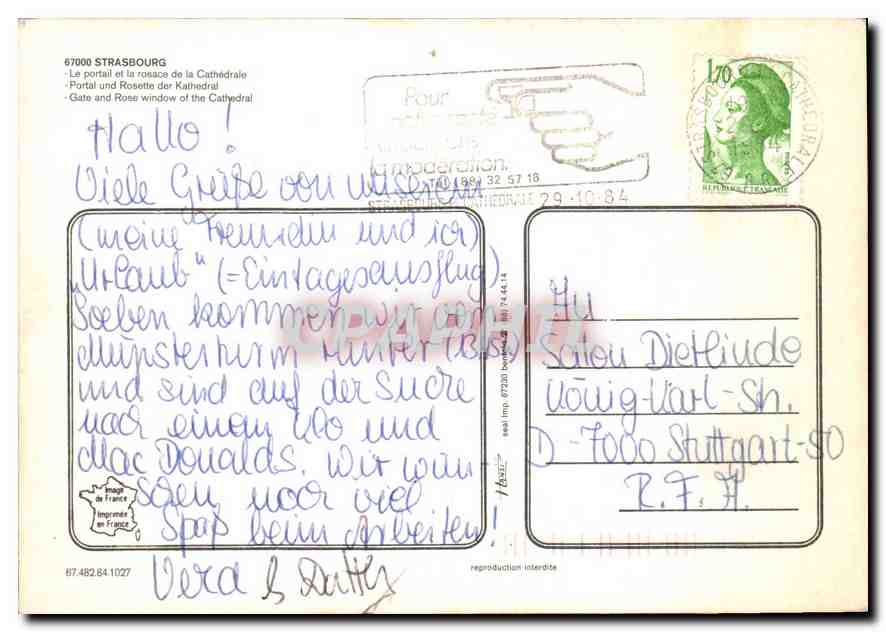 67000 STRASBOURG
- Le portail et la rosace de la Cathédrale
- Portal und Rosette der Kathedral
- Gate and Rose window of the Cathedral
Pour
la modération.
Tél. (88) 32 57 18
STRASBOURG CATHEDRALE 29-10-84
1,70
REPUBLIQUE FRANÇAISE
Hallo!
Viele Grüße von unserem
(meine Freundin und ich)
„Urlaub" (=Eintagesausflug).
Soeben kommen wir vom
Münsterturm runter
und sind auf der Suche
nach einem Klo und
Mac Donalds. Wir wün-
schen noch viel
Spaß beim Arbeiten!
Vera & Dotty
CPAPHIL
An
Salon Dietlinde
König-Karl-Str.
D-7000 Stuttgart-50
R.F.A.
Image
de France
Imprimée
en France
67.482.84.1027
reproduction interdite